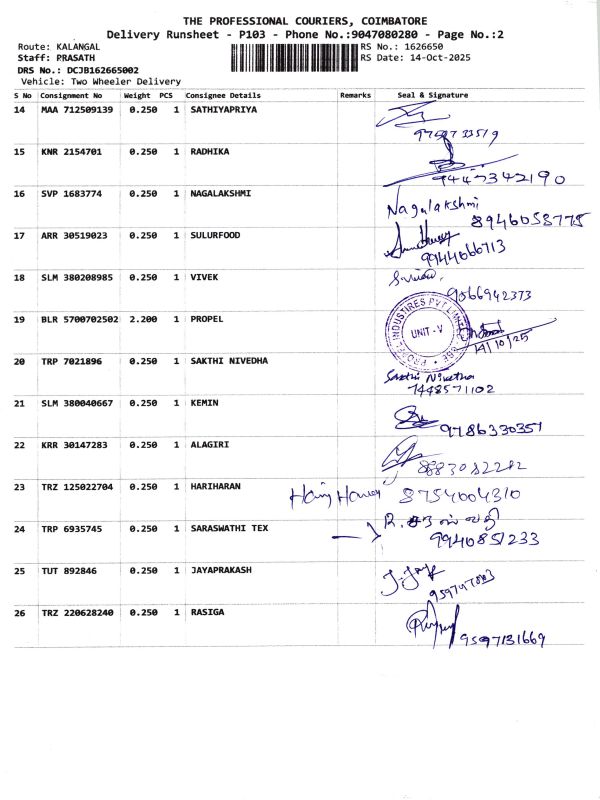 THE PROFESSIONAL COURIERS, COIMBATORE
Delivery Runsheet - P103 - Phone No.:9047080280 - Page No.:2
Route: KALANGAL RS No.: 1626650
Staff: PRASATH RS Date: 14-Oct-2025
DRS No.: DCJB162665002
Vehicle: Two Wheeler Delivery
S No Consignment No Weight PCS Consignee Details Remarks Seal & Signature
14 MAA 712509139 0.250 1 SATHIYAPRIYA
15 KNR 2154701 0.250 1 RADHIKA
16 SVP 1683774 0.250 1 NAGALAKSHMI
Nagalakshmi
8946058775
17 ARR 30519023 0.250 1 SULURFOOD
9944066713
18 SLM 380208985 0.250 1 VIVEK
9566942373
19 BLR 5700702502 2.200 1 PROPEL
UNIT - V
14/10/25
20 TRP 7021896 0.250 1 SAKTHI NIVEDHA
Sakthi Nivetha
7448571102
21 SLM 380040667 0.250 1 KEMIN
9786330351
22 KRR 30147283 0.250 1 ALAGIRI
23 TRZ 125022704 0.250 1 HARIHARAN
8754004310
24 TRP 6935745 0.250 1 SARASWATHI TEX
9940851233
25 TUT 892846 0.250 1 JAYAPRAKASH
26 TRZ 220628240 0.250 1 RASIGA
9597131669